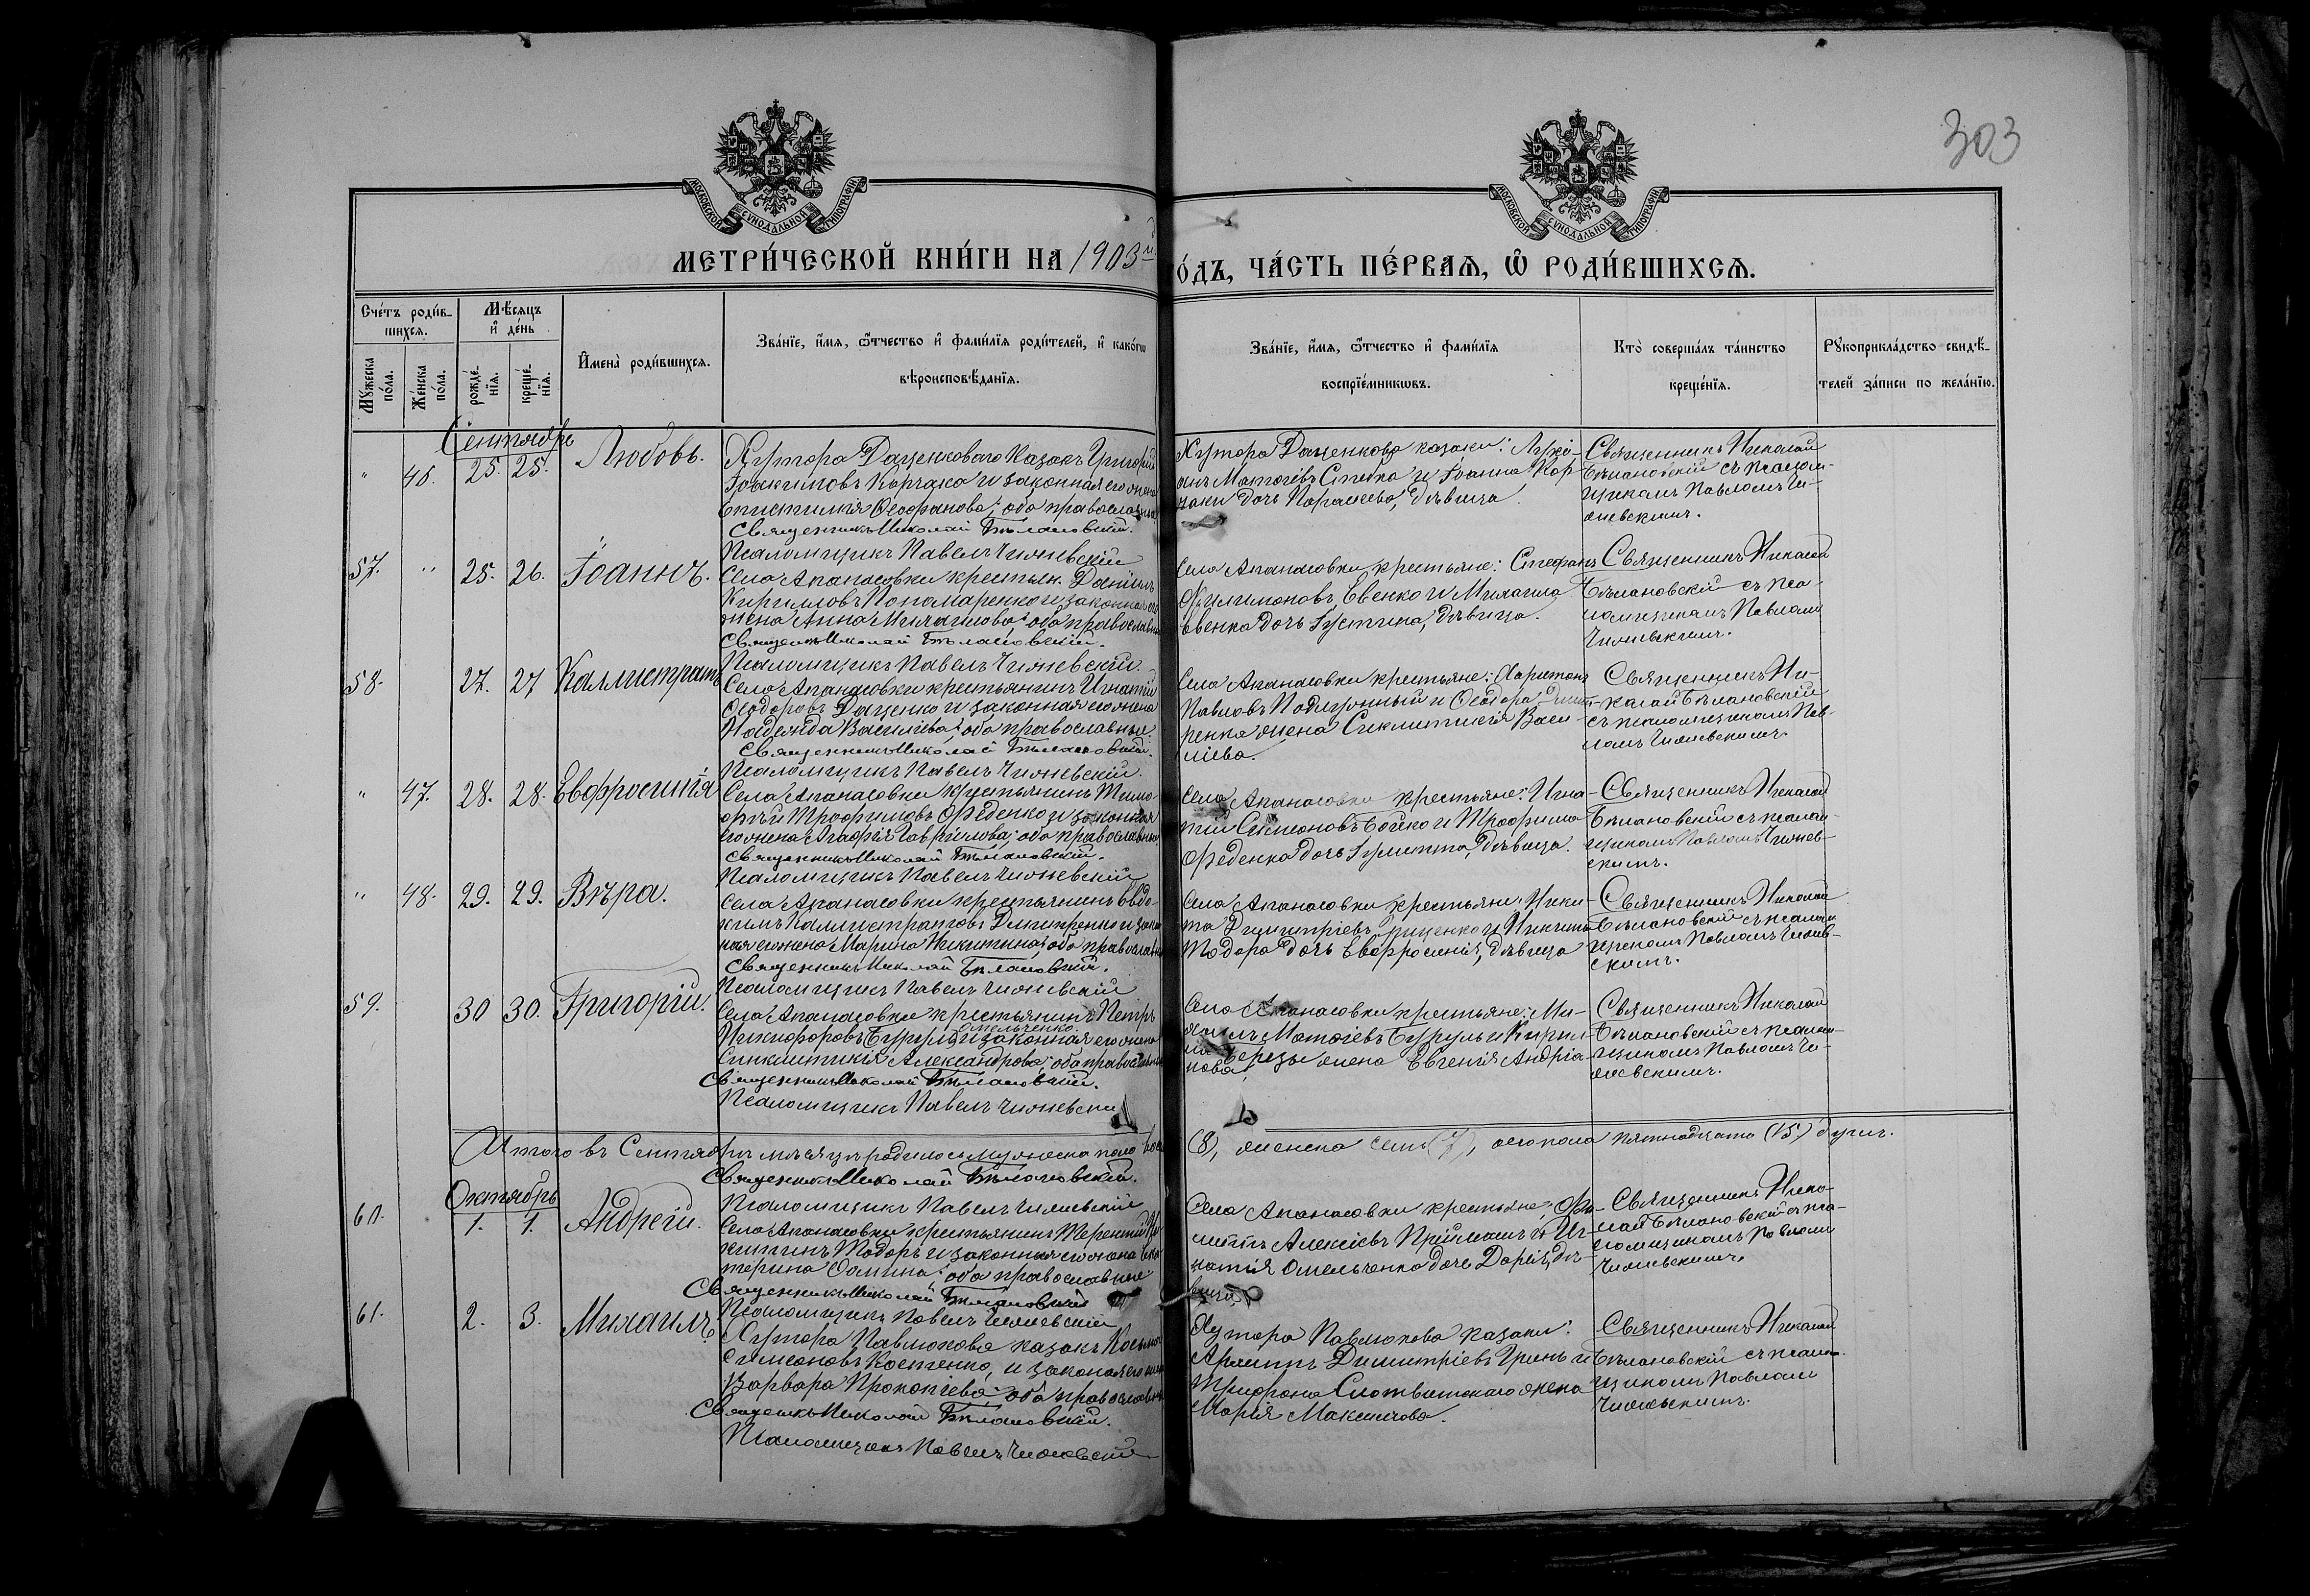 303
МОСКОВСКОЙ СѴНОДАЛЬНОЙ ТИПОГРАФІИ
МОСКОВСКОЙ СѴНОДАЛЬНОЙ ТИПОГРАФІИ
МЕТРИ́ЧЕСКОЙ КНИ́ГИ НА 1903й
О́ДЪ, ЧА́СТЬ ПЕ́РВАѦ, Ѽ РОДИ́ВШИХСѦ.
Сче́тъ роди́в-
шихсѧ.
Мꙋ́жеска по́ла.
Же́нска по́ла.
Мѣ́сѧцъ
и҆ де́нь
рожде́-
нїѧ.
креще́-
нїѧ.
И҆мена̀ роди́вшихсѧ.
Зва́нїе, и҆́мѧ, ѻ҆́тчество и҆ фами́лїѧ роди́телей, и҆ како́гѡ
вѣроисповѣ́данїѧ.
Зва́нїе, и҆́мѧ, ѻ҆́тчество и҆ фами́лїѧ
воспрїе́мникѡвъ.
Кто̀ соверша́лъ та́инство
креще́нїѧ.
Рꙋкоприкла́дство свидѣ́-
телей за́писи по жела́нїю.
Сентябрь
" 46. 25. 25. Любовь.
Хутора Даценковаго казакъ Григорій
Іоакимовъ Корчака и законная его жена
Епистимія Ѳеофанова; оба православные
Священникъ Николай Бѣлановскій.
Псаломщикъ Павелъ Чижевскій
Хутора Даценкова казаки:
анъ Матѳіевъ и Іоанна Кор-
чаки дочь дѣвица.
Священникъ Николай
Бѣлановскій съ псалом-
щикомъ Павломъ Чи-
жевскимъ.
57. " 25. 26. Іоаннъ.
Села Апанасовки крестьян. Даніилъ
Кирилловъ Пономаренко и законная его
жена Анна Михаилова; оба православные
Священникъ Николай Бѣлановскій.
Псаломщикъ Павелъ Чижевскій.
Села Апанасовки крестьяне: Стефанъ
Филимоновъ Евенко и Михаила
Евенка дочь Іустина, дѣвица.
Священникъ Николай
Бѣлановскій съ пса-
ломщикомъ Павломъ
Чижевскимъ.
58. 27. 27 Каллистратъ
Села Апанасовки крестьянинъ Игнатій
Ѳеодоровъ Даценко и законная его жена
Надежда Василіева; оба православные.
Священникъ Николай Бѣлановскій.
Псаломщикъ Павелъ Чижевскій.
Села Апанасовки крестьяне: Харитонъ
Павловъ и Ѳеодора
ренка жена Синклитикія Васи-
ліева.
Священникъ Ни-
колай Бѣлановскій
съ псаломщикомъ Пав-
ломъ Чижевскимъ.
" 47. 28. 28. Евфросинія
Села Апанасовки крестьянинъ Тимо-
ѳей Трофимовъ Феденко и законная
его жена Агафія Гавріилова; оба православные
Священникъ Николай Бѣлановскій.
Псаломщикъ Павелъ Чижевскій
Села Апанасовки крестьяне: Игна-
тій Симеоновъ Бойко и Трофима
Феденка дочь дѣвица.
Священникъ Николай
Бѣлановскій съ псалом-
щикомъ Павломъ Чижев-
скимъ.
" 48. 29. 29. Вѣра.
Села Апанасовки крестьянинъ Евдо-
кимъ Каллистратовъ Дмитренко и закон
ная его жена Марина Никитина; оба православные
Священникъ Николай Бѣлановскій.
Псаломщикъ Павелъ Чижевскій
Села Апанасовки крестьяне: Ники-
та Димитріевъ Гриценко и Никиты
Тодора дочь Евфросинія, дѣвица
Священникъ Николай
Бѣлановскій съ псалом
щикомъ Павломъ Чижев-
скимъ.
59. 30 30. Григорій.
Села Апанасовки крестьянинъ Петръ
Омельченко
Никифоровъ Бурулъ и законная его жена
Синклитикія Александрова; оба православные
Священникъ Николай Бѣлановскій.
Псаломщикъ Павелъ Чижевскій
Села Апанасовки крестьяне: Ми-
хаилъ Матѳіевъ Бурулъ и Кирил-
ла Березы жена Евгенія Андріа-
нова.
Священникъ Николай
Бѣлановскій съ псалом-
щикомъ Павломъ Чи-
жевскимъ.
Итого въ Сентябрѣ мѣсяцѣ родилось мужеска пола
(8), женска семь (7), обоего пола пятнадцать (15) душъ.
Священникъ Николай Бѣлановскій.
Псаломщикъ Павелъ Чижевскій
Октябрь
60. 1. 1. Андрей.
Села Апанасовки крестьянинъ Терентій Ни
китинъ Тодоръ и законная его жена Ека
терина Ѳомина; оба православные
Священникъ Николай Бѣлановскій
Псаломщикъ Павелъ Чижевскій
Села Апанасовки крестьяне; Фи-
липпъ Алексіевъ Приймакъ и Иг-
натія Омельченка дочь Дарія, дѣ-
вица.
Священникъ Нико-
лай Бѣлановскій съ пса-
ломщикомъ Павломъ
Чижевскимъ.
61. 2. 3. Михаилъ.
Хутора Павлюкова казакъ Косьма
Симеоновъ Костенко, и законная его жена
Варвара Прокопіева; оба православные
Священникъ Николай Бѣлановскій.
Псаломщикъ Павелъ Чижевскій
Хутора Павлюкова казаки:
Архиппъ Димитріевъ Гринь и
Трифона жена
Марія Максимова.
Священникъ Николай
Бѣлановскій съ псалом-
щикомъ Павломъ
Чижевскимъ.